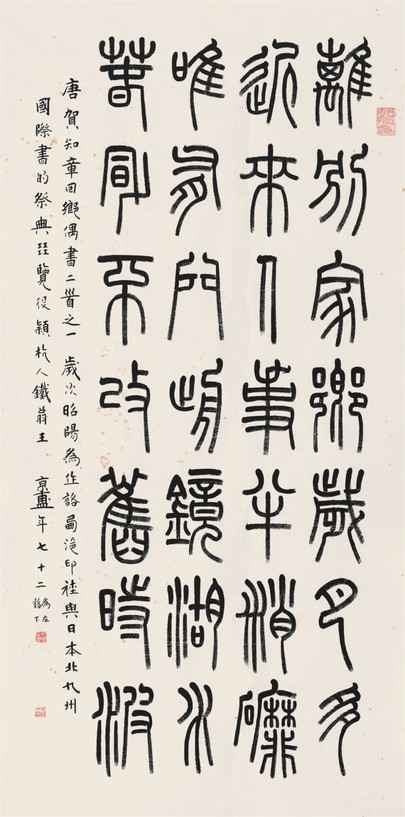 離別家鄉歲月多
近來人事半消磨
唯有門前鏡湖水
春風不改舊時波
唐賀知章回鄉偶書二首之一 歲次昭陽為作詻西泠印社與日本北九州
國際書的祭典㠭覽役穎 杭人鐵翁王京盙年七十二